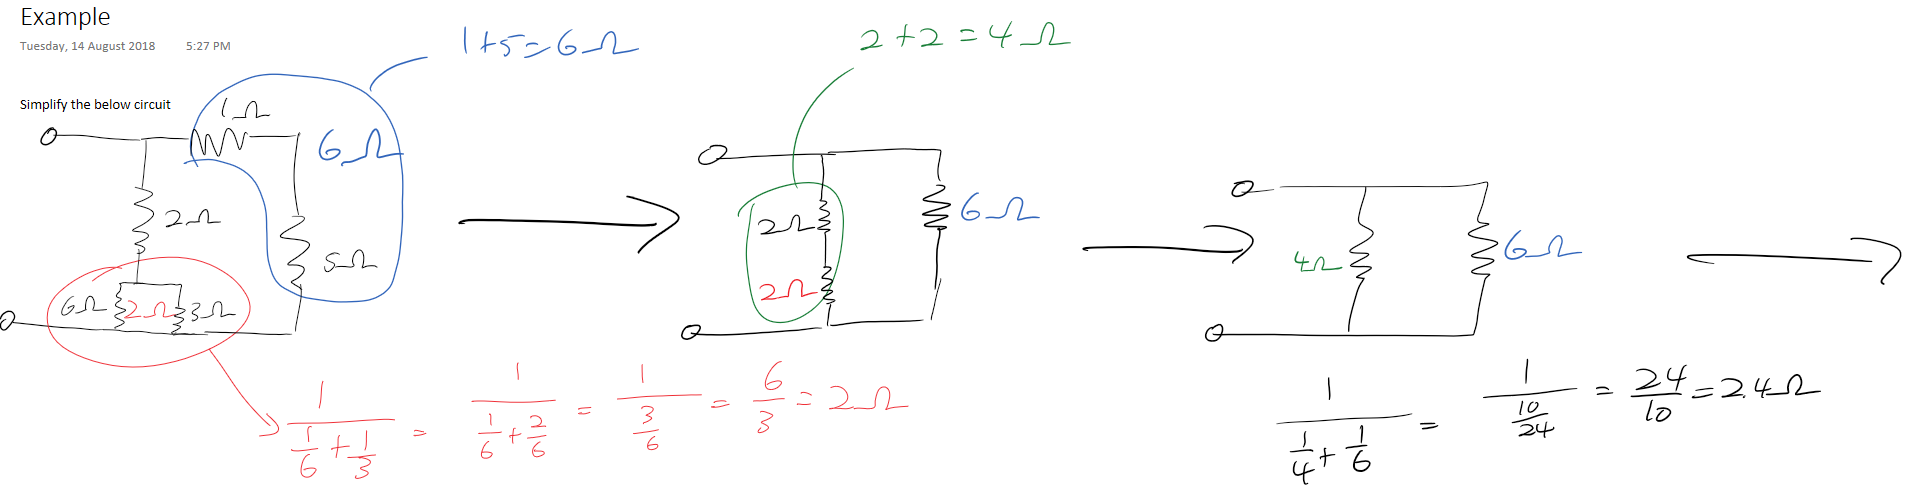 Example
Tuesday, 14 August 2018 5:27 PM
Simplify the below circuit
1+5=6Ω
2+2=4Ω
1Ω
6Ω
2Ω
5Ω
6Ω 2Ω 3Ω
2Ω
2Ω
6Ω
4Ω
6Ω
1/(1/6 + 1/3) = 1/(1/6 + 2/6) = 1/(3/6) = 6/3 = 2Ω
1/(1/4 + 1/6) = 1/(10/24) = 24/10 = 2.4Ω